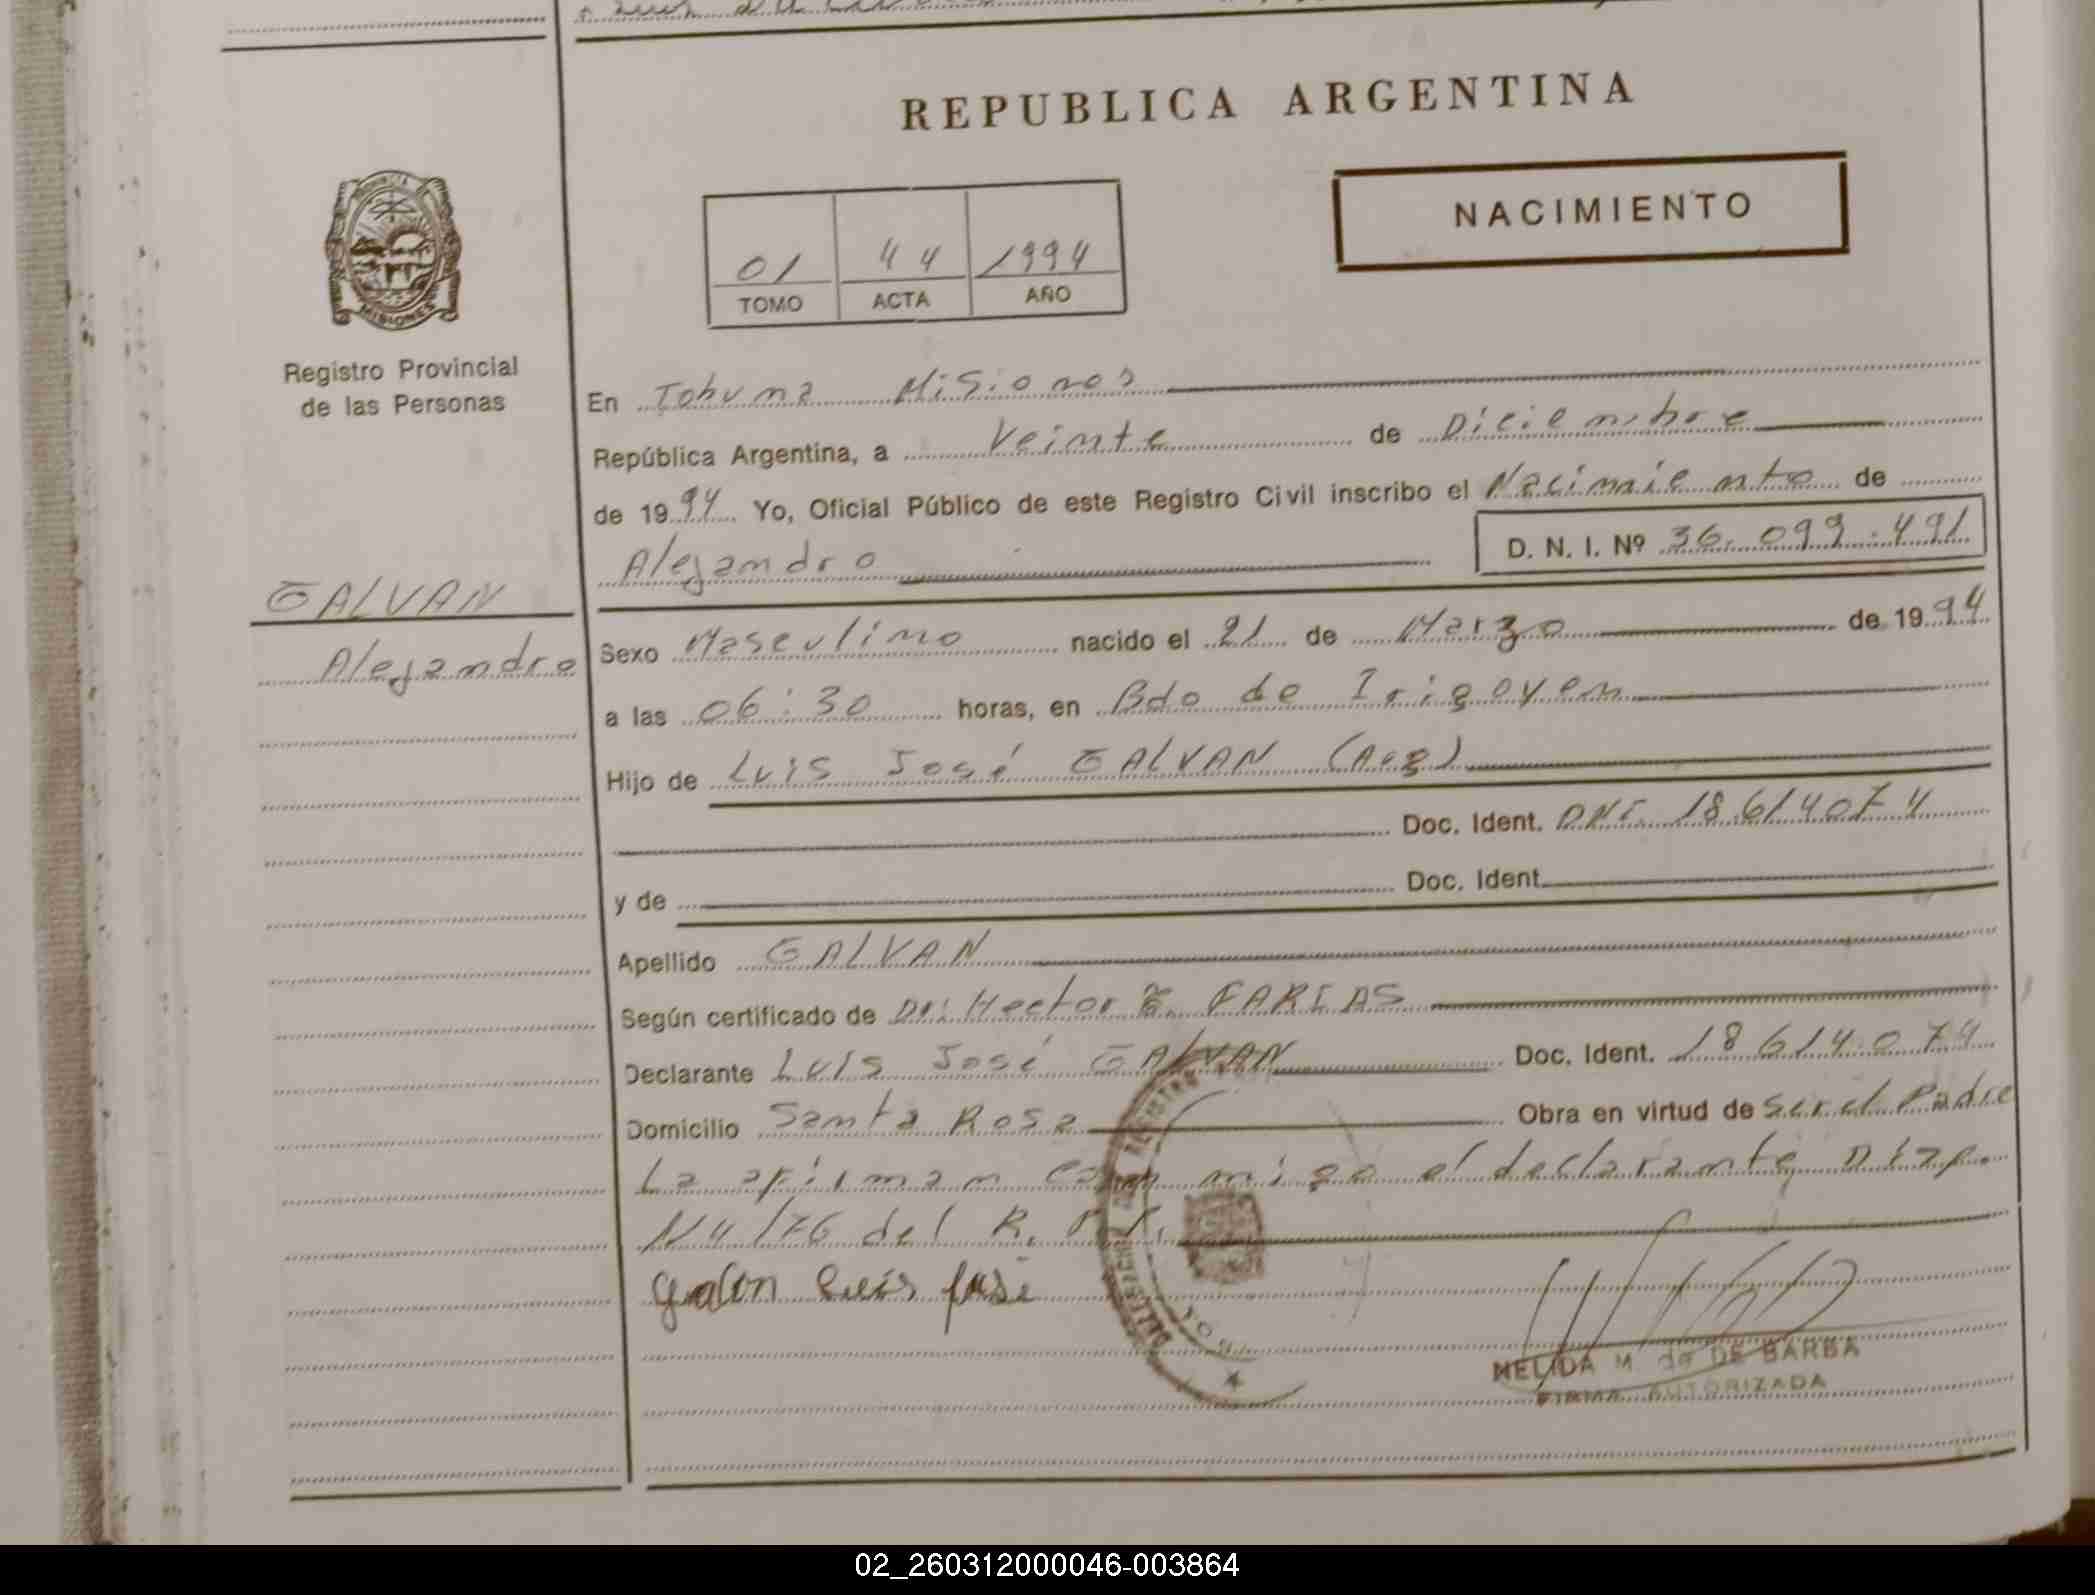 REPUBLICA ARGENTINA
NACIMIENTO
01 44 1994
TOMO ACTA AÑO
PROVINCIA
MISIONES
Registro Provincial
de las Personas
GALVAN
Alejandro
En Tobuna Misiones
República Argentina, a Veinte de Diciembre
de 1994 Yo, Oficial Público de este Registro Civil inscribo el Nacimiento de
Alejandro D. N. I. Nº 36.099.491
Sexo Masculino nacido el 21 de Marzo de 1994
a las 06:30 horas, en Bdo de Irigoyen
Hijo de Luis José GALVAN (Arg)
Doc. Ident. DNI 18.614074
y de Doc. Ident.
Apellido GALVAN
Según certificado de Dr: Hector E. FARIAS
Declarante Luis José GALVAN Doc. Ident. 18614.074
Domicilio Santa Rosa Obra en virtud de Ser el Padre
La afirman conmigo el declarante Disp.
N 4/76 del R. P. P.
Galvan Luis José
NELIDA M. de DE BARBA
FIRMA AUTORIZADA
02_260312000046-003864